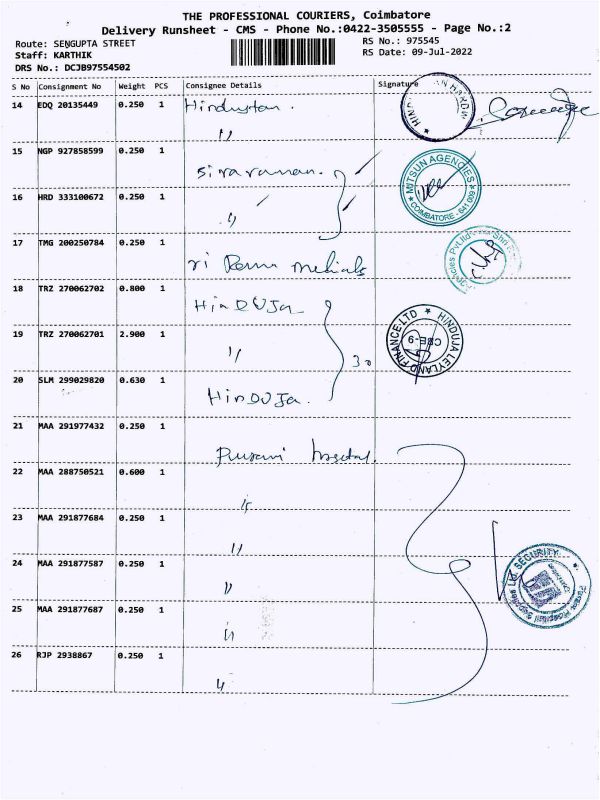 THE PROFESSIONAL COURIERS, Coimbatore
Delivery Runsheet - CMS - Phone No.:0422-3505555 - Page No.:2
Route: SENGUPTA STREET
RS No.: 975545
Staff: KARTHIK
RS Date: 09-Jul-2022
DRS No.: DCJB97554502
S No Consignment No Weight PCS Consignee Details Signature
14 EDQ 20135449 0.250 1 Hindustan.
"
15 NGP 927858599 0.250 1
sivaraman.
MITSUN AGENCIES
COIMBATORE - 641 009
16 HRD 333100672 0.250 1
"
17 TMG 200250784 0.250 1
medicals
18 TRZ 270062702 0.800 1
HinDUJa
HINDUJA LEYLAND FINANCE LTD
CBE-9
19 TRZ 270062701 2.900 1
"
30
20 SLM 299029820 0.630 1
HinDUJa.
21 MAA 291977432 0.250 1
22 MAA 288750521 0.600 1
"
23 MAA 291877684 0.250 1
"
24 MAA 291877587 0.250 1
"
SECURITY
25 MAA 291877687 0.250 1
"
26 RJP 2938867 0.250 1
"